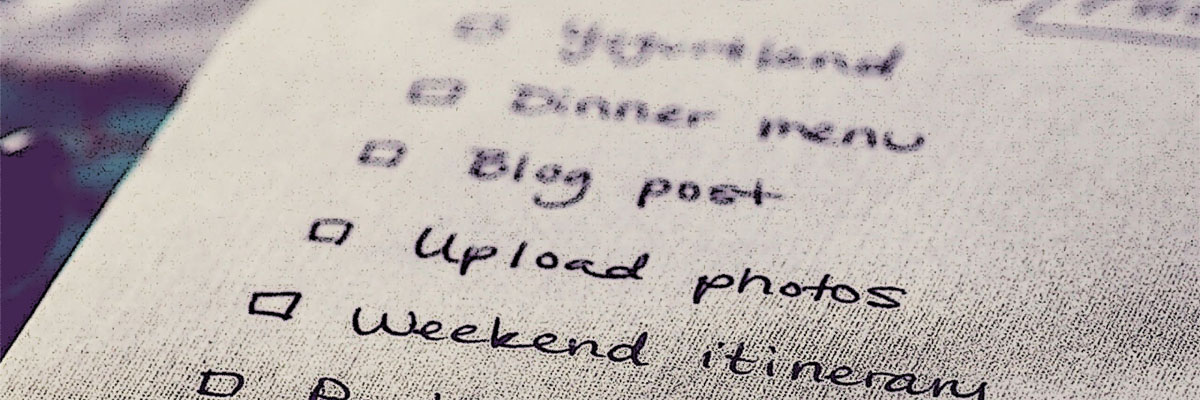 Yogurtland
Dinner menu
Blog post
Upload photos
Weekend itinerary